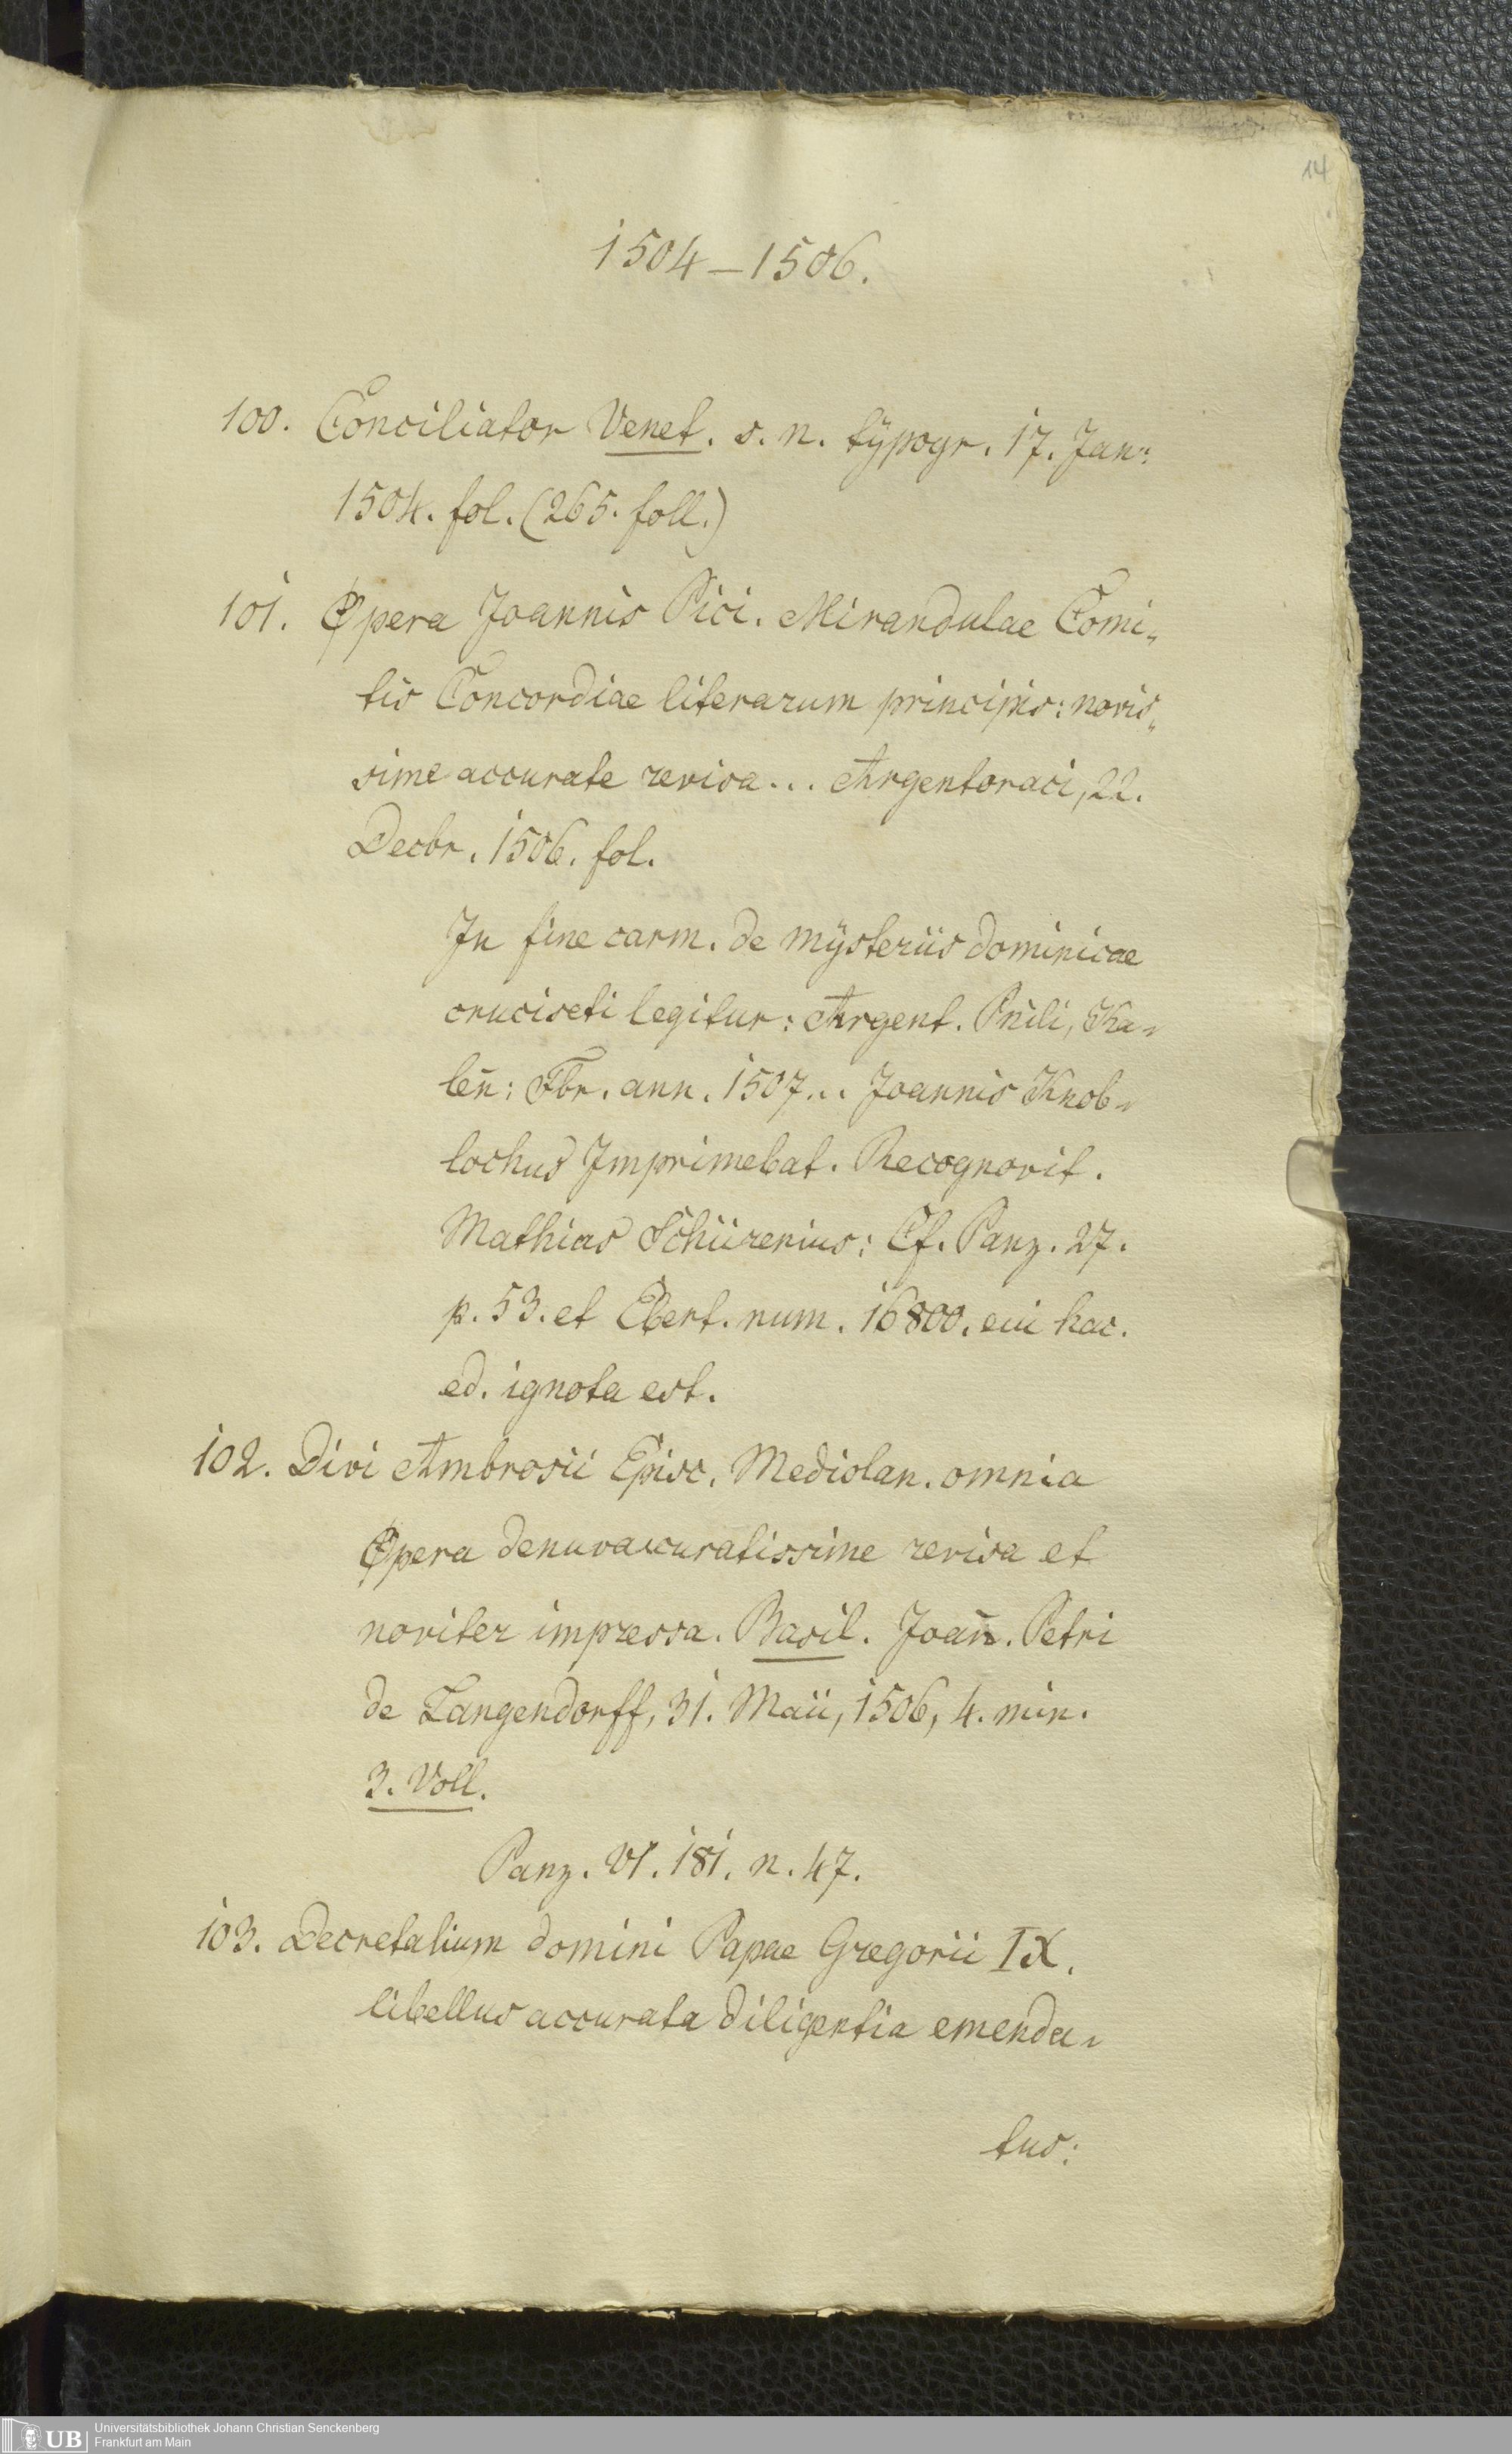 14
1504–1506.
100. Conciliator Venet. s. n. typogr. 17. Jan:
1504. fol. (265. foll.)
101. Opera Joannis Pici. Mirandulae Comi„
tis Concordiae literarum principis: novis„
sime accurate revisa... Argentoraci, 22.
Decbr. 1506. fol.
In fine carm. de mÿsteriis dominicae
cruciseti legitur: Argent. Prili, Ka-
leñ: Fbr. ann. 1507... Joannis Knob-
lochus Imprimebat. Recognovit.
Mathias Schürenius: Cf. Panz. 27.
p. 53. et Ebert. num. 16800. cui hac.
ed. ignota est.
102. Divi Ambrosii Episc. Mediolan. omnia
Opera denuvaccuratissime revisa et
noviter impressa. Basil. Joañ. Petri
de Langendorff, 31. Maii, 1506, 4. min.
3. Voll.
Panz. VI. 181. n. 47.
103. Decretalium domini Papae Gregorii IX.
libellus accurata diligentia emenda-
tus:
UB Universitätsbibliothek Johann Christian Senckenberg
Frankfurt am Main